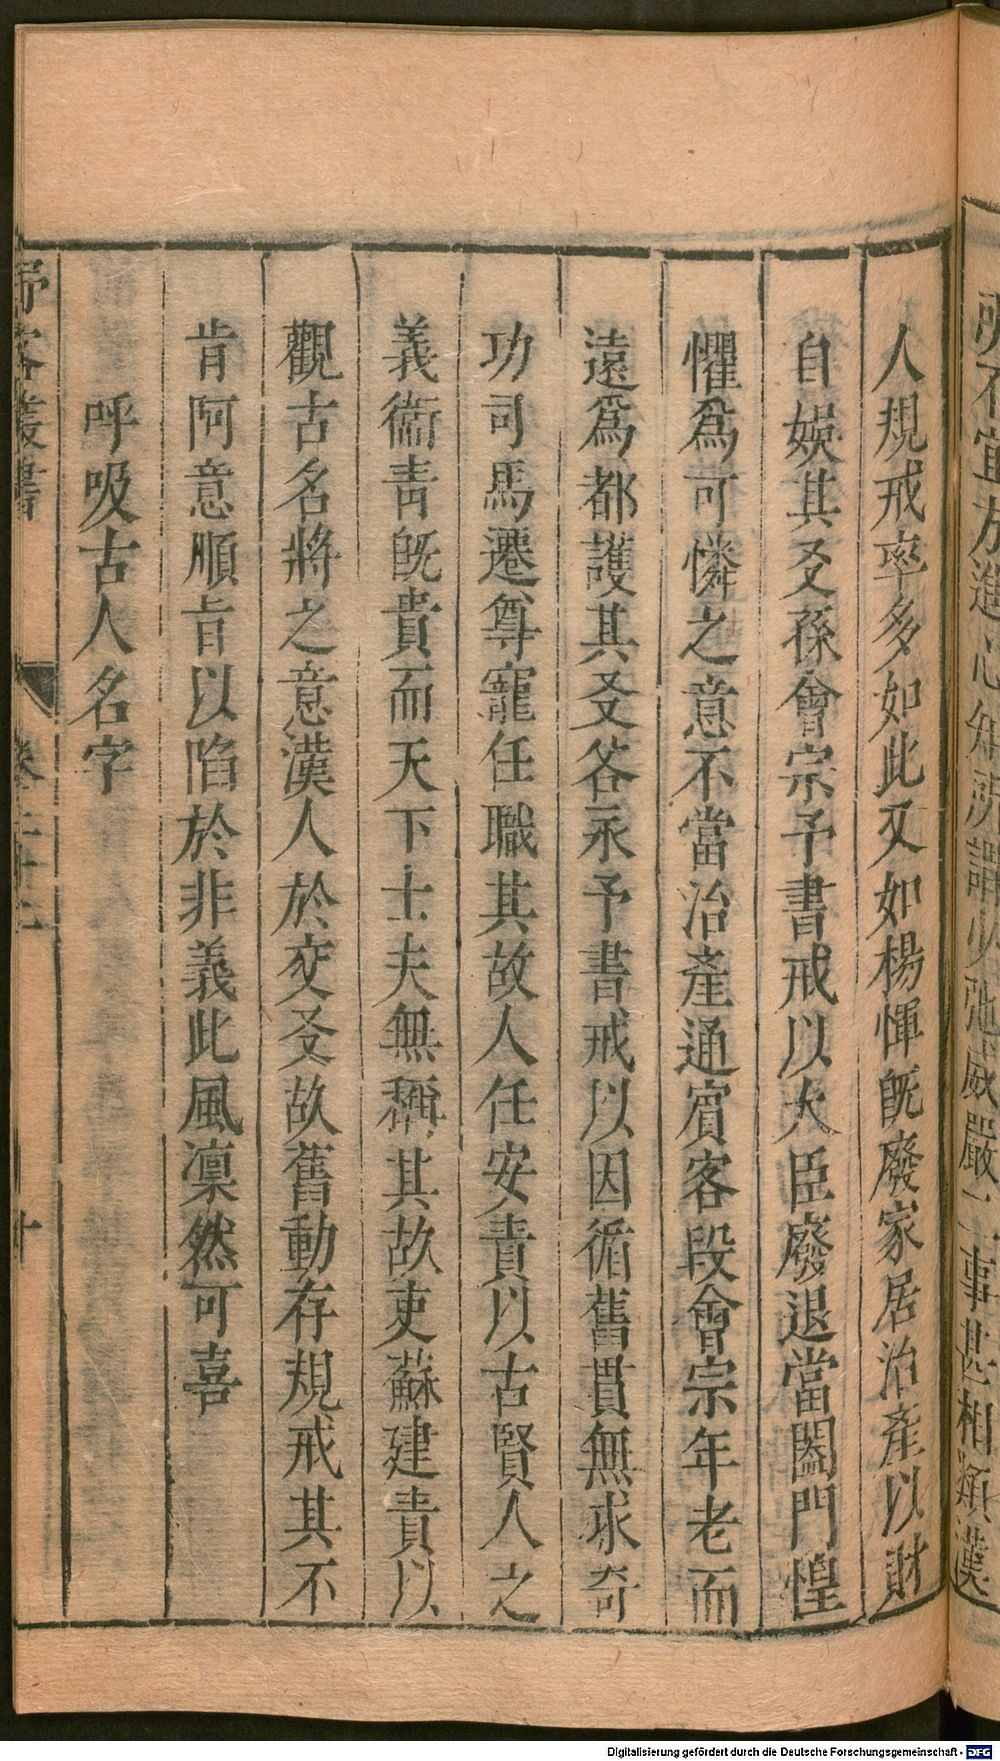 人規戒率多如此又如楊惲旣廢家居治產以財
自娛其㕛孫會宗予書戒以大臣廢退當闔門惶
懼爲可憐之意不當治產通賓客段會宗年老而
遠爲都護其㕛谷永予書戒以因循舊貫無求奇
功司馬遷尊寵任職其故人任安責以古賢人之
義衞青旣貴而天下士夫無稱其故吏蘇建責以
觀古名將之意漢人於交㕛故舊動存規戒其不
肯阿意順旨以陷於非義此風凜然可喜
呼吸古人名字
卷二十二
十
Digitalisierung gefördert durch die Deutsche Forschungsgemeinschaft - DFG